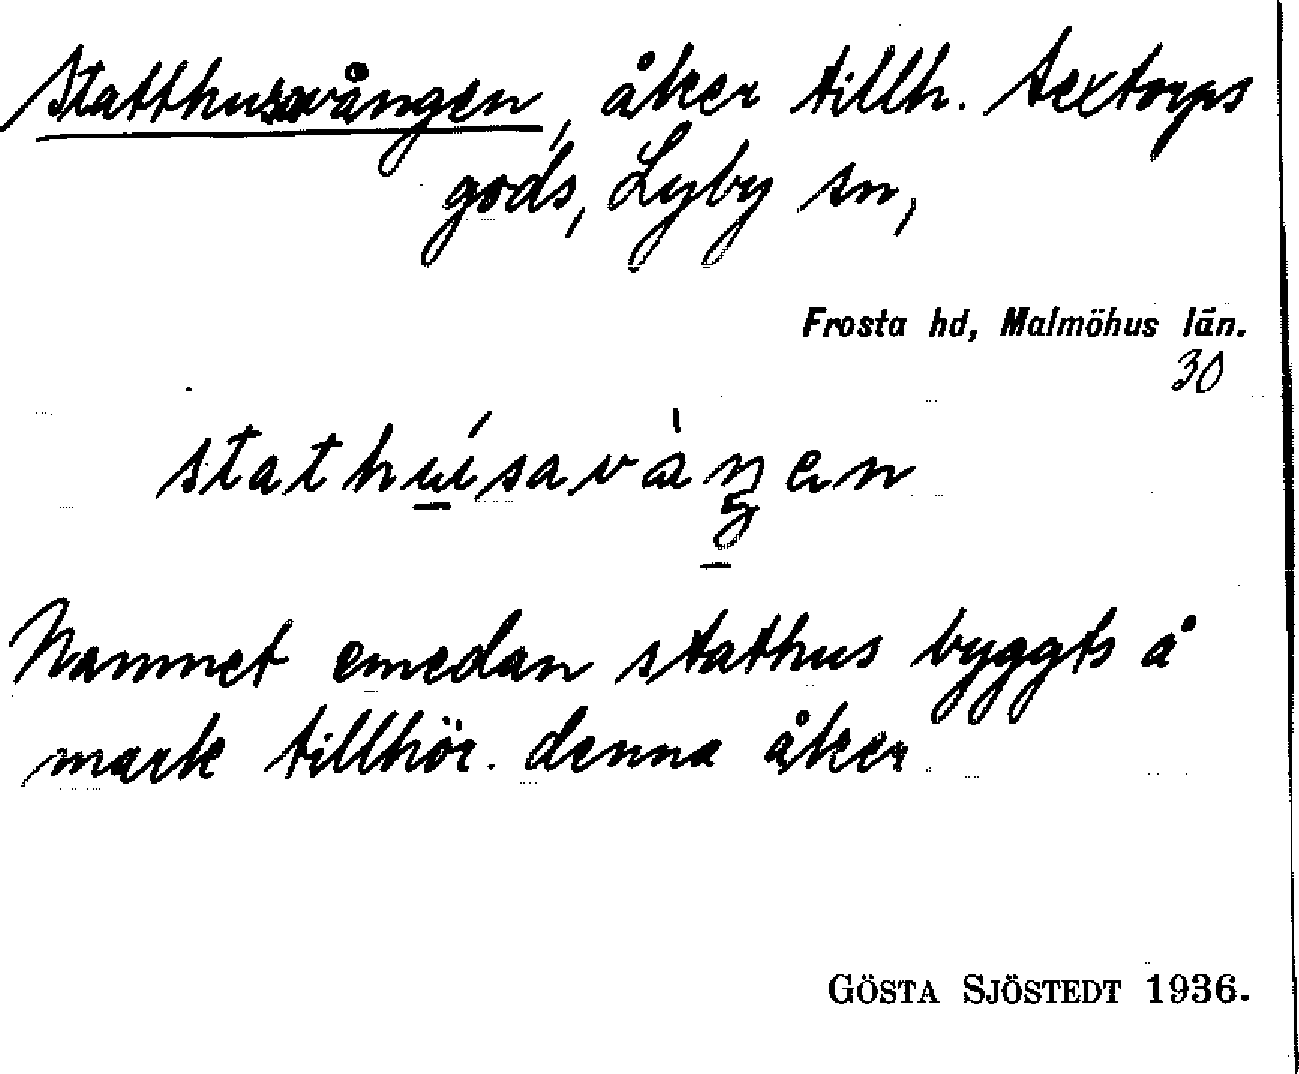 Statthusavången, åker tillh. Sextorps
gods, Lyby sn,
Frosta hd, Malmöhus län.
30
Namnet emedan stathus byggts å
mark tillhör. denna åker.
GÖSTA SJÖSTEDT 1936.